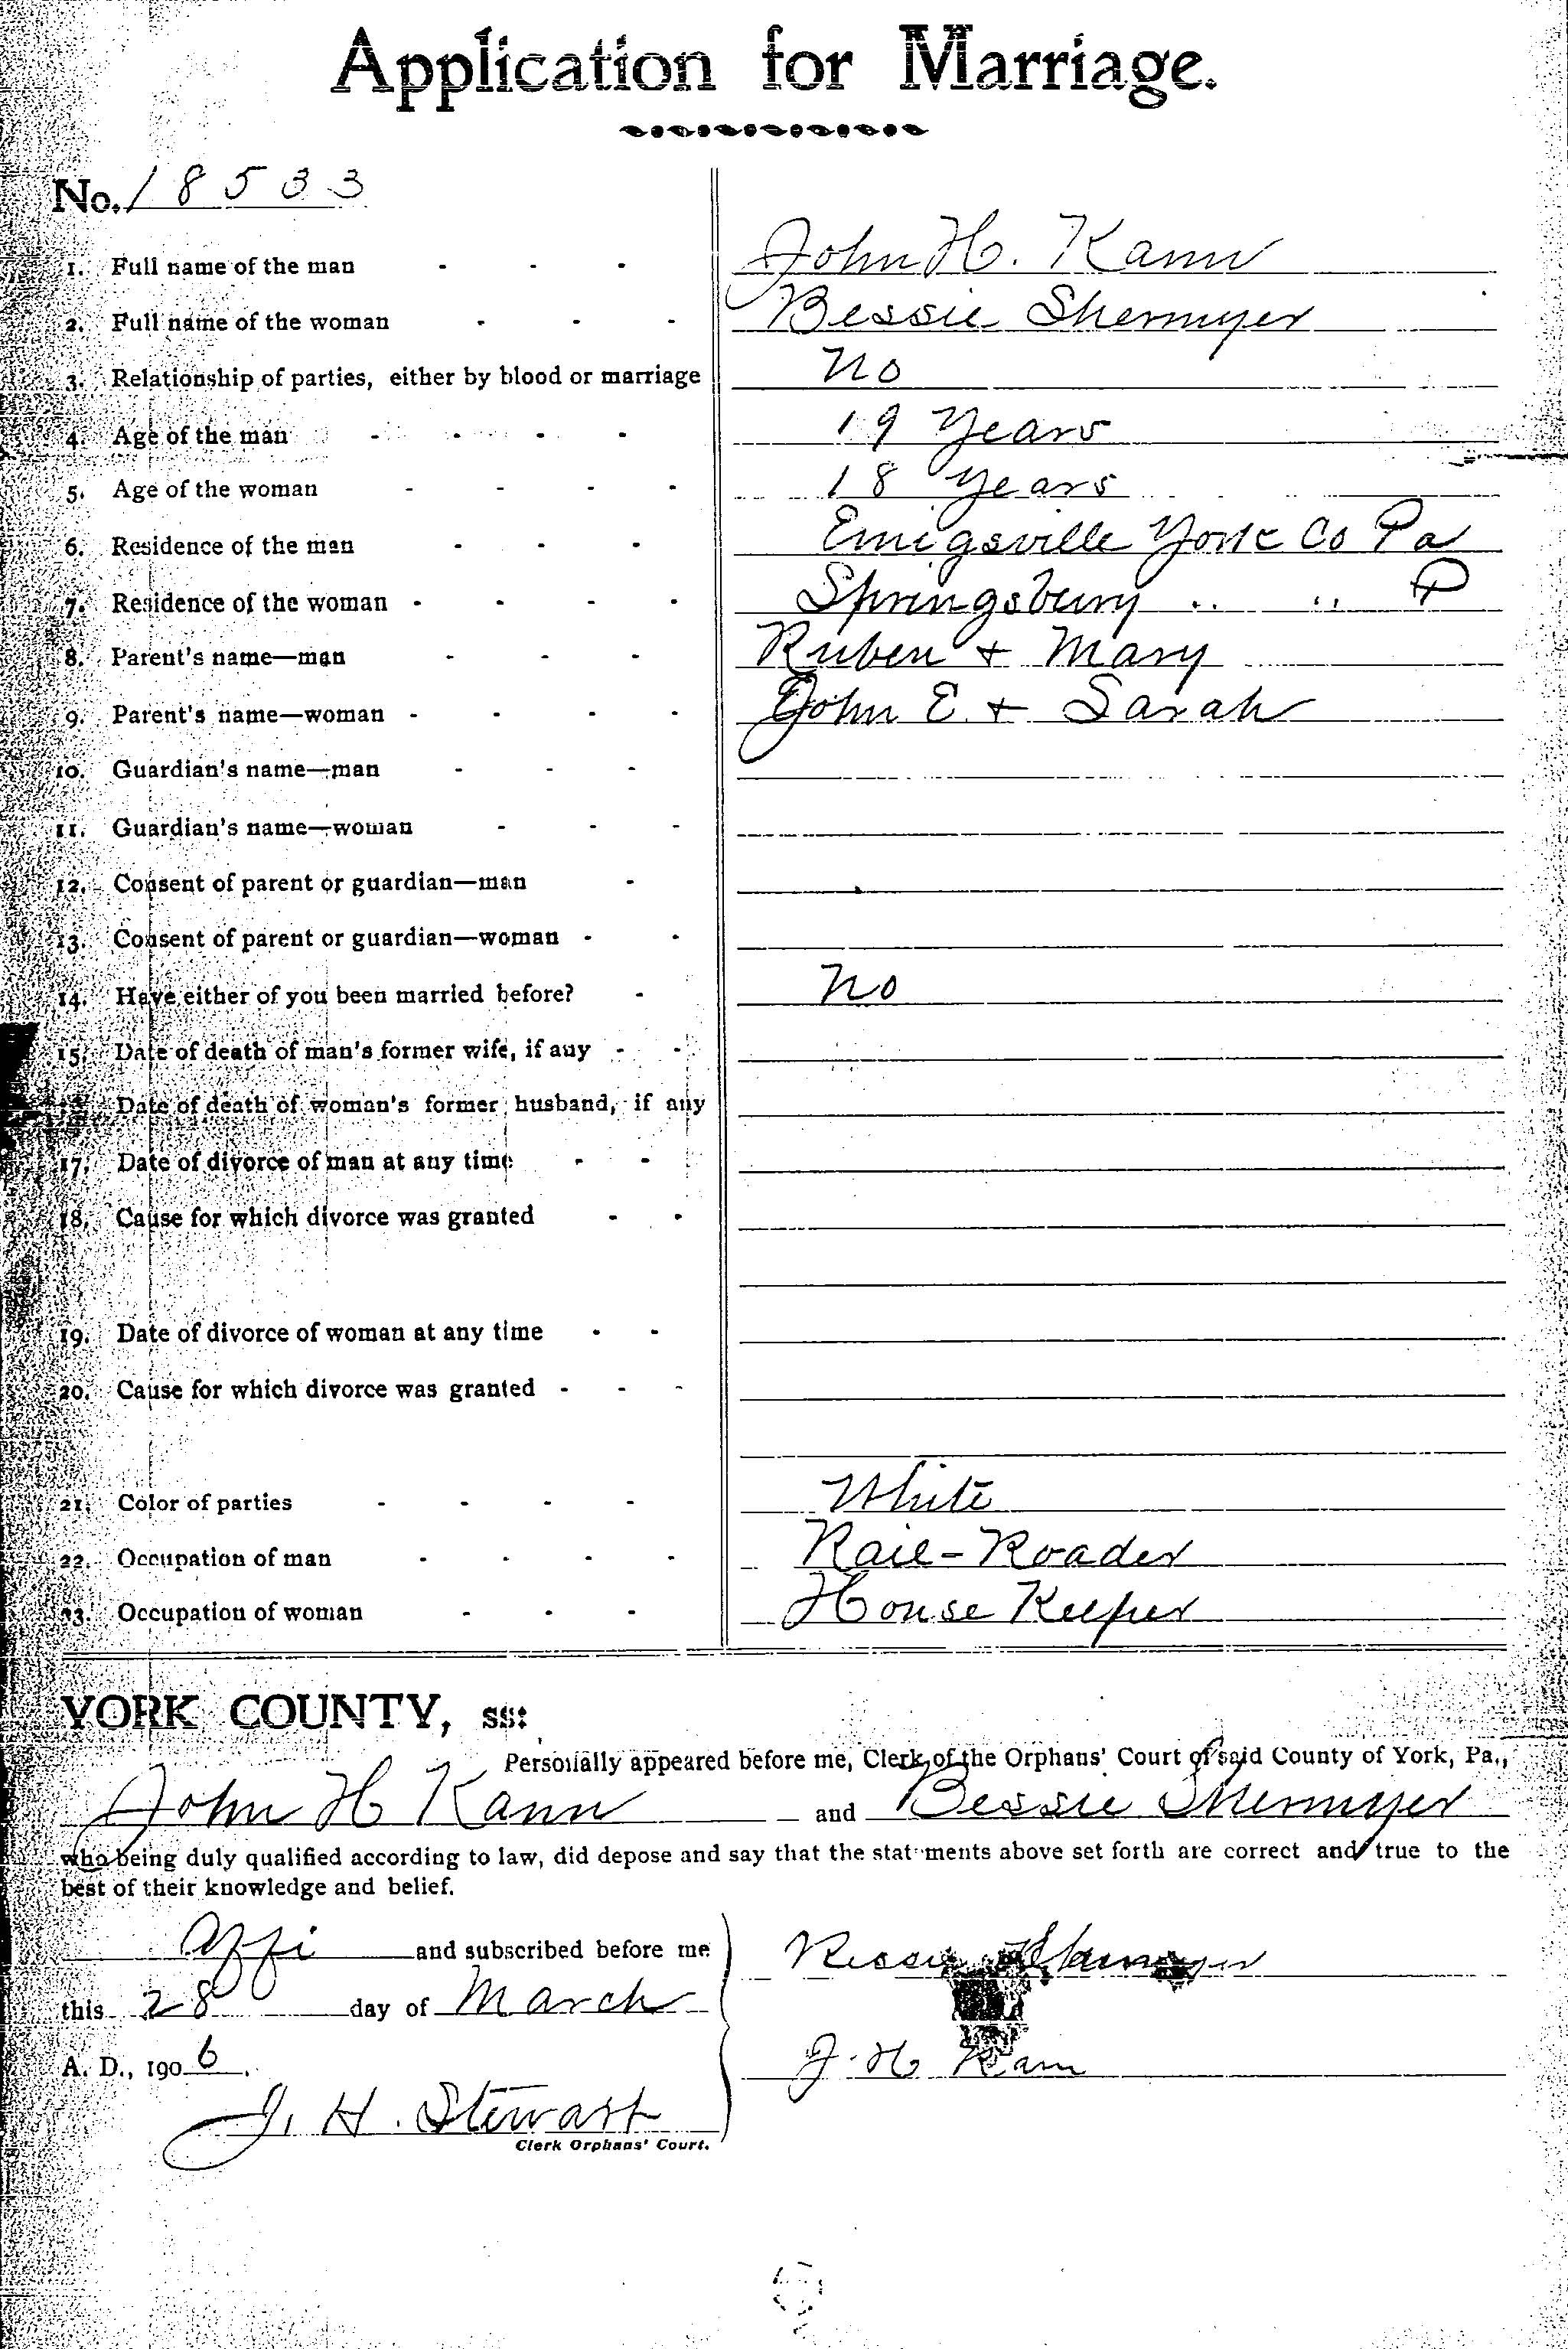 Application for Marriage.
No. 18533
1. Full name of the man - - - John H. Kann
2. Full name of the woman - - - Bessie Shermyer
3. Relationship of parties, either by blood or marriage No
4. Age of the man - - - - 19 Years
5. Age of the woman - - - - 18 Years
6. Residence of the man - - - Emigsville York Co Pa
7. Residence of the woman - - - - Springsbury " " P
8. Parent's name—man - - - Ruben + Mary
9. Parent's name—woman - - - - John E. + Sarah
10. Guardian's name—man - - -
11. Guardian's name—woman - - -
12. Consent of parent or guardian—man -
13. Consent of parent or guardian—woman - -
14. Have either of you been married before? - No
15. Date of death of man's former wife, if any - -
Date of death of woman's former husband, if any
17. Date of divorce of man at any time - -
18. Cause for which divorce was granted - -
19. Date of divorce of woman at any time - -
20. Cause for which divorce was granted - - -
21. Color of parties - - - - White
22. Occupation of man - - - - Rail-Roader
23. Occupation of woman - - - House Keeper
YORK COUNTY, ss:
Personally appeared before me, Clerk of the Orphans' Court of said County of York, Pa.,
John H Kann and Bessie Shermyer
who being duly qualified according to law, did depose and say that the statements above set forth are correct and true to the
best of their knowledge and belief.
Affi and subscribed before me
Bessie
this 28 day of March
A. D., 1906.
J. H Kann
J. H. Stewart
Clerk Orphans' Court.